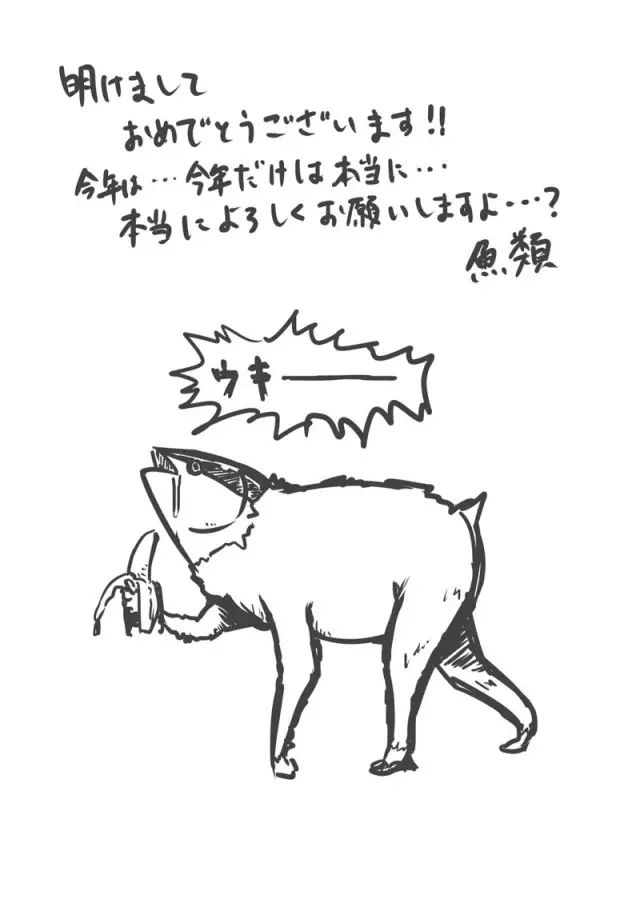 明けまして
おめでとうございます!!
今年は…今年だけは本当に…
本当によろしくお願いしますよ…?
魚類
ウキー